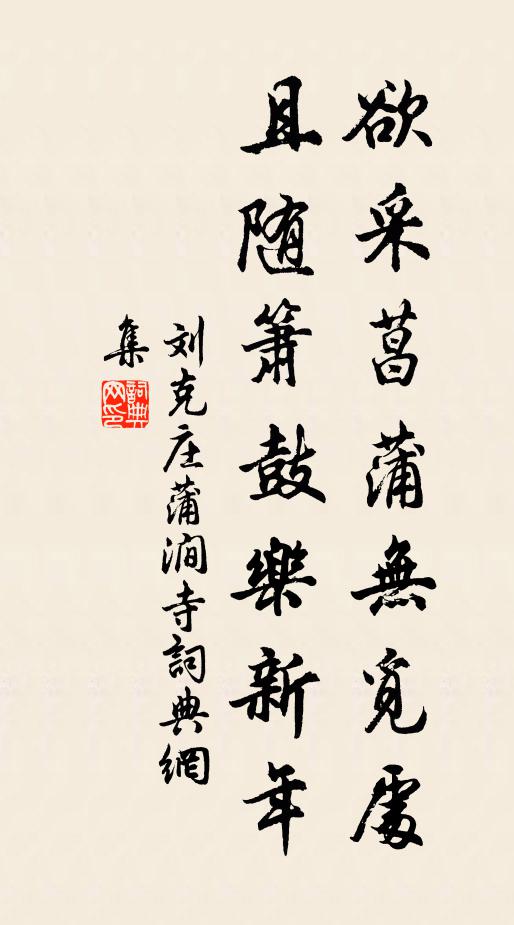 欲采菖蒲無覓處
且随簫鼓樂新年
刘克庄蒲澗寺詞典網
集
詞典
网印